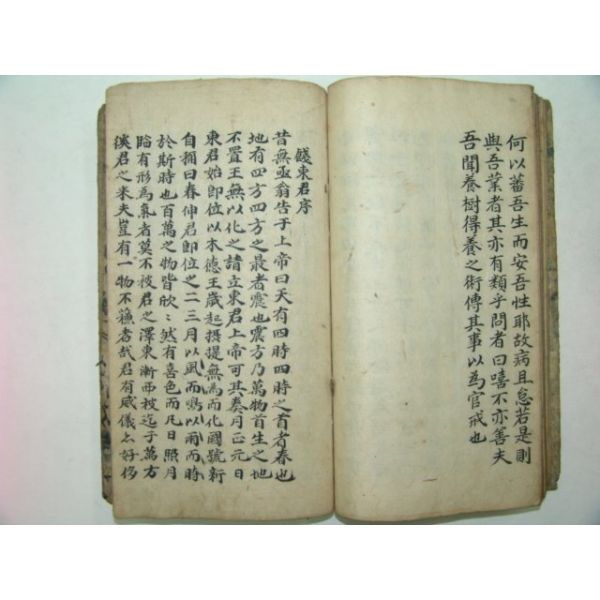 何以蕃吾生而安吾性耶故病且怠若是則
與吾業者其亦有類乎問者曰嘻不亦善夫
吾聞養樹得養之術傳其事以為官戒也
餞東君序
昔無亟翁告于上帝曰天有四時四時之首者春也
地有四方四方之最者震也震方乃萬物首生之地
不置王無以化之請立東君上帝可其奏月正元日
東君始即位以木德王歲起攝提無為而化國號新
自稱曰春伸君即位之二三月以風而鳴以雨而時
於斯時也百萬之物皆欣欣然有喜色而凡日照月
臨有形為氣者莫不被君之澤東漸西被迄于萬方
徯君之来夫豈有一物不蘓者㢤君有威儀上好侈